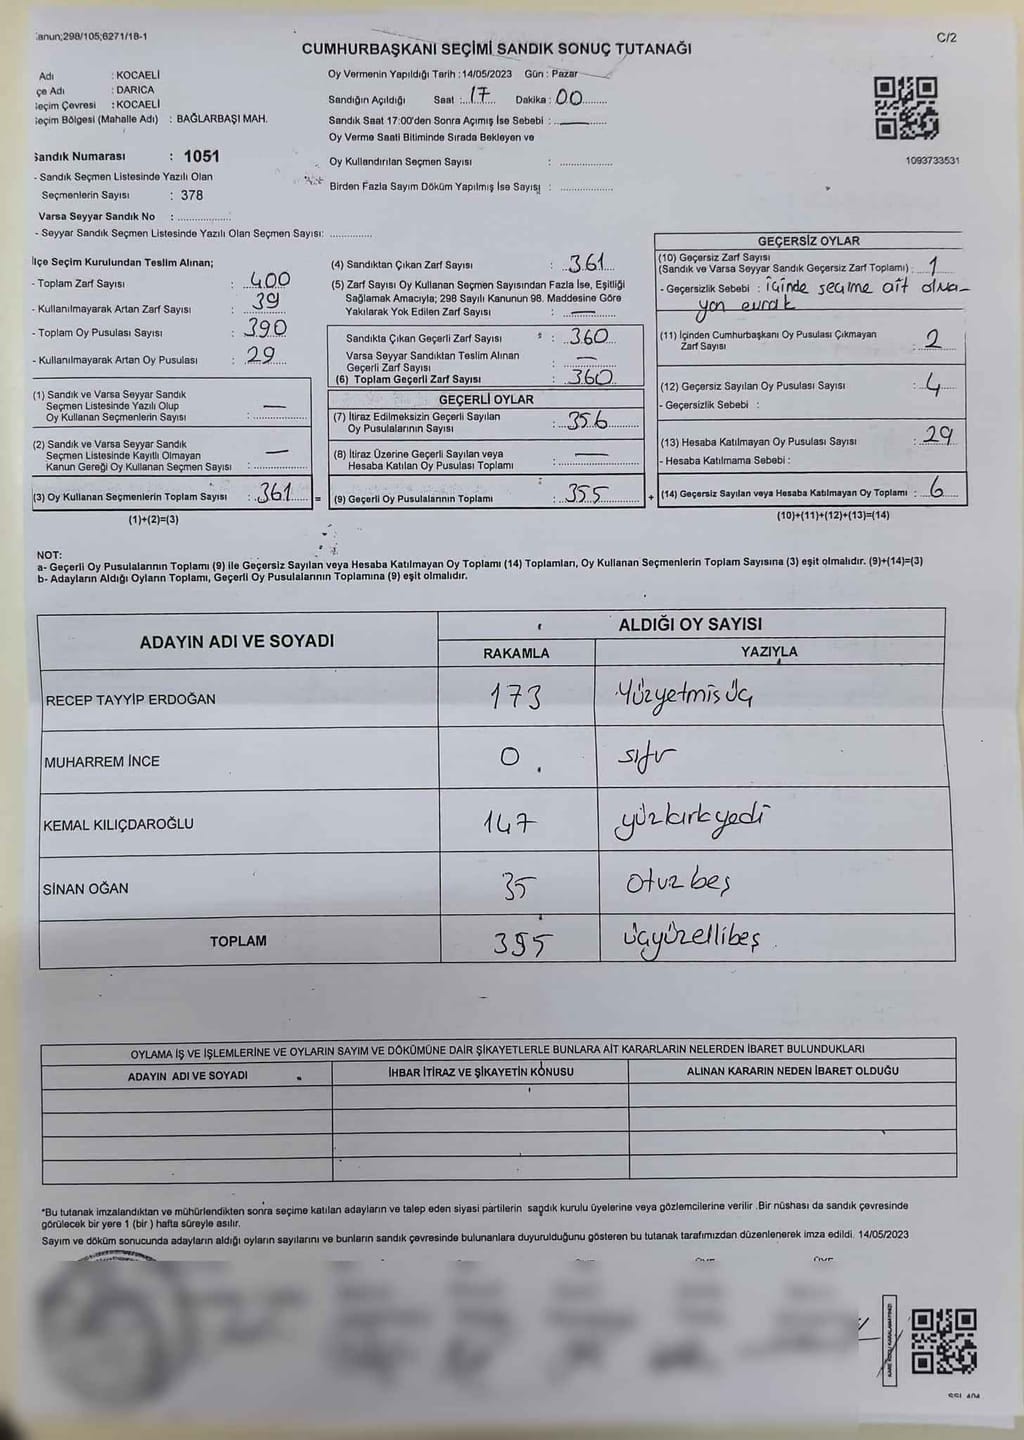 anun;298/105;6271/18-1
C/2
CUMHURBAŞKANI SEÇİMİ SANDIK SONUÇ TUTANAĞI
Adı : KOCAELİ
çe Adı : DARICA
eçim Çevresi : KOCAELİ
eçim Bölgesi (Mahalle Adı) : BAĞLARBAŞI MAH.
Sandık Numarası : 1051
- Sandık Seçmen Listesinde Yazılı Olan
Seçmenlerin Sayısı : 378
Varsa Seyyar Sandık No :
- Seyyar Sandık Seçmen Listesinde Yazılı Olan Seçmen Sayısı:
Oy Vermenin Yapıldığı Tarih : 14/05/2023 Gün : Pazar
Sandığın Açıldığı Saat : 17 Dakika : 00
Sandık Saat 17:00'den Sonra Açımış İse Sebebi : —
Oy Verme Saati Bitiminde Sırada Bekleyen ve
Oy Kullandırılan Seçmen Sayısı :
Birden Fazla Sayım Döküm Yapılmış İse Sayısı :
1093733531
İlçe Seçim Kurulundan Teslim Alınan;
- Toplam Zarf Sayısı : 400
- Kullanılmayarak Artan Zarf Sayısı : 39
- Toplam Oy Pusulası Sayısı : 390
- Kullanılmayarak Artan Oy Pusulası : 29
(1) Sandık ve Varsa Seyyar Sandık
Seçmen Listesinde Yazılı Olup
Oy Kullanan Seçmenlerin Sayısı : —
(2) Sandık ve Varsa Seyyar Sandık
Seçmen Listesinde Kayıtlı Olmayan
Kanun Gereği Oy Kullanan Seçmen Sayısı : —
(3) Oy Kullanan Seçmenlerin Toplam Sayısı : 361 =
(1)+(2)=(3)
(4) Sandıktan Çıkan Zarf Sayısı : 361
(5) Zarf Sayısı Oy Kullanan Seçmen Sayısından Fazla İse, Eşitliği
Sağlamak Amacıyla; 298 Sayılı Kanunun 98. Maddesine Göre
Yakılarak Yok Edilen Zarf Sayısı : —
Sandıkta Çıkan Geçerli Zarf Sayısı : 360
Varsa Seyyar Sandıktan Teslim Alınan
Geçerli Zarf Sayısı : —
(6) Toplam Geçerli Zarf Sayısı : 360
GEÇERLİ OYLAR
(7) İtiraz Edilmeksizin Geçerli Sayılan
Oy Pusulalarının Sayısı : 356
(8) İtiraz Üzerine Geçerli Sayılan veya
Hesaba Katılan Oy Pusulası Toplamı : —
(9) Geçerli Oy Pusulalarının Toplamı : 355 +
GEÇERSİZ OYLAR
(10) Geçersiz Zarf Sayısı
(Sandık ve Varsa Seyyar Sandık Geçersiz Zarf Toplamı) : 1
- Geçersizlik Sebebi : içinde seçime ait olma-
yan evrak
(11) İçinden Cumhurbaşkanı Oy Pusulası Çıkmayan
Zarf Sayısı : 2
(12) Geçersiz Sayılan Oy Pusulası Sayısı : 4
- Geçersizlik Sebebi :
(13) Hesaba Katılmayan Oy Pusulası Sayısı : 29
- Hesaba Katılmama Sebebi :
(14) Geçersiz Sayılan veya Hesaba Katılmayan Oy Toplamı : 6
(10)+(11)+(12)+(13)=(14)
NOT:
a- Geçerli Oy Pusulalarının Toplamı (9) ile Geçersiz Sayılan veya Hesaba Katılmayan Oy Toplamı (14) Toplamları, Oy Kullanan Seçmenlerin Toplam Sayısına (3) eşit olmalıdır. (9)+(14)=(3)
b- Adayların Aldığı Oyların Toplamı, Geçerli Oy Pusulalarının Toplamına (9) eşit olmalıdır.
ADAYIN ADI VE SOYADI
ALDIĞI OY SAYISI
RAKAMLA YAZIYLA
RECEP TAYYİP ERDOĞAN 173 Yüzyetmiş üç
MUHARREM İNCE 0 sıfır
KEMAL KILIÇDAROĞLU 147 yüzkırkyedi
SİNAN OĞAN 35 otuz beş
TOPLAM 355 üçyüzellibeş
OYLAMA İŞ VE İŞLEMLERİNE VE OYLARIN SAYIM VE DÖKÜMÜNE DAİR ŞİKAYETLERLE BUNLARA AİT KARARLARIN NELERDEN İBARET BULUNDUKLARI
ADAYIN ADI VE SOYADI İHBAR İTİRAZ VE ŞİKAYETİN KONUSU ALINAN KARARIN NEDEN İBARET OLDUĞU
*Bu tutanak imzalandıktan ve mühürlendikten sonra seçime katılan adayların ve talep eden siyasi partilerin sandık kurulu üyelerine veya gözlemcilerine verilir .Bir nüshası da sandık çevresinde
görülecek bir yere 1 (bir ) hafta süreyle asılır.
Sayım ve döküm sonucunda adayların aldığı oyların sayılarını ve bunların sandık çevresinde bulunanlara duyurulduğunu gösteren bu tutanak tarafımızdan düzenlenerek imza edildi. 14/05/2023
KARE KODU KARALAMAYINIZ!